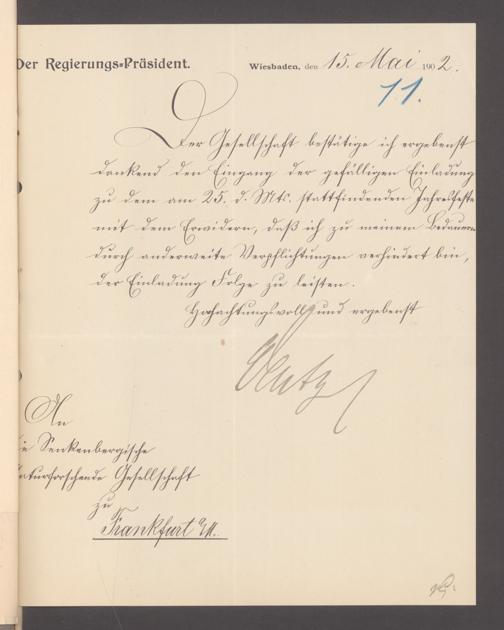 Der Regierungs-Präsident.
Wiesbaden, den 15. Mai 1902.
11.
Der Gesellschaft bestätige ich ergebenst
dankend den Eingang der gefälligen Einladung
zu dem am 25. d. Mts. stattfindenden Jahresfeste
mit dem Erwidern, daß ich zu meinem Bedauern
durch anderweite Verpflichtungen verhindert bin,
der Einladung Folge zu leisten.
Hochachtungsvoll und ergebenst
An
ie Senkenbergische
naturforschende Gesellschaft
zu
Frankfurt a/M.